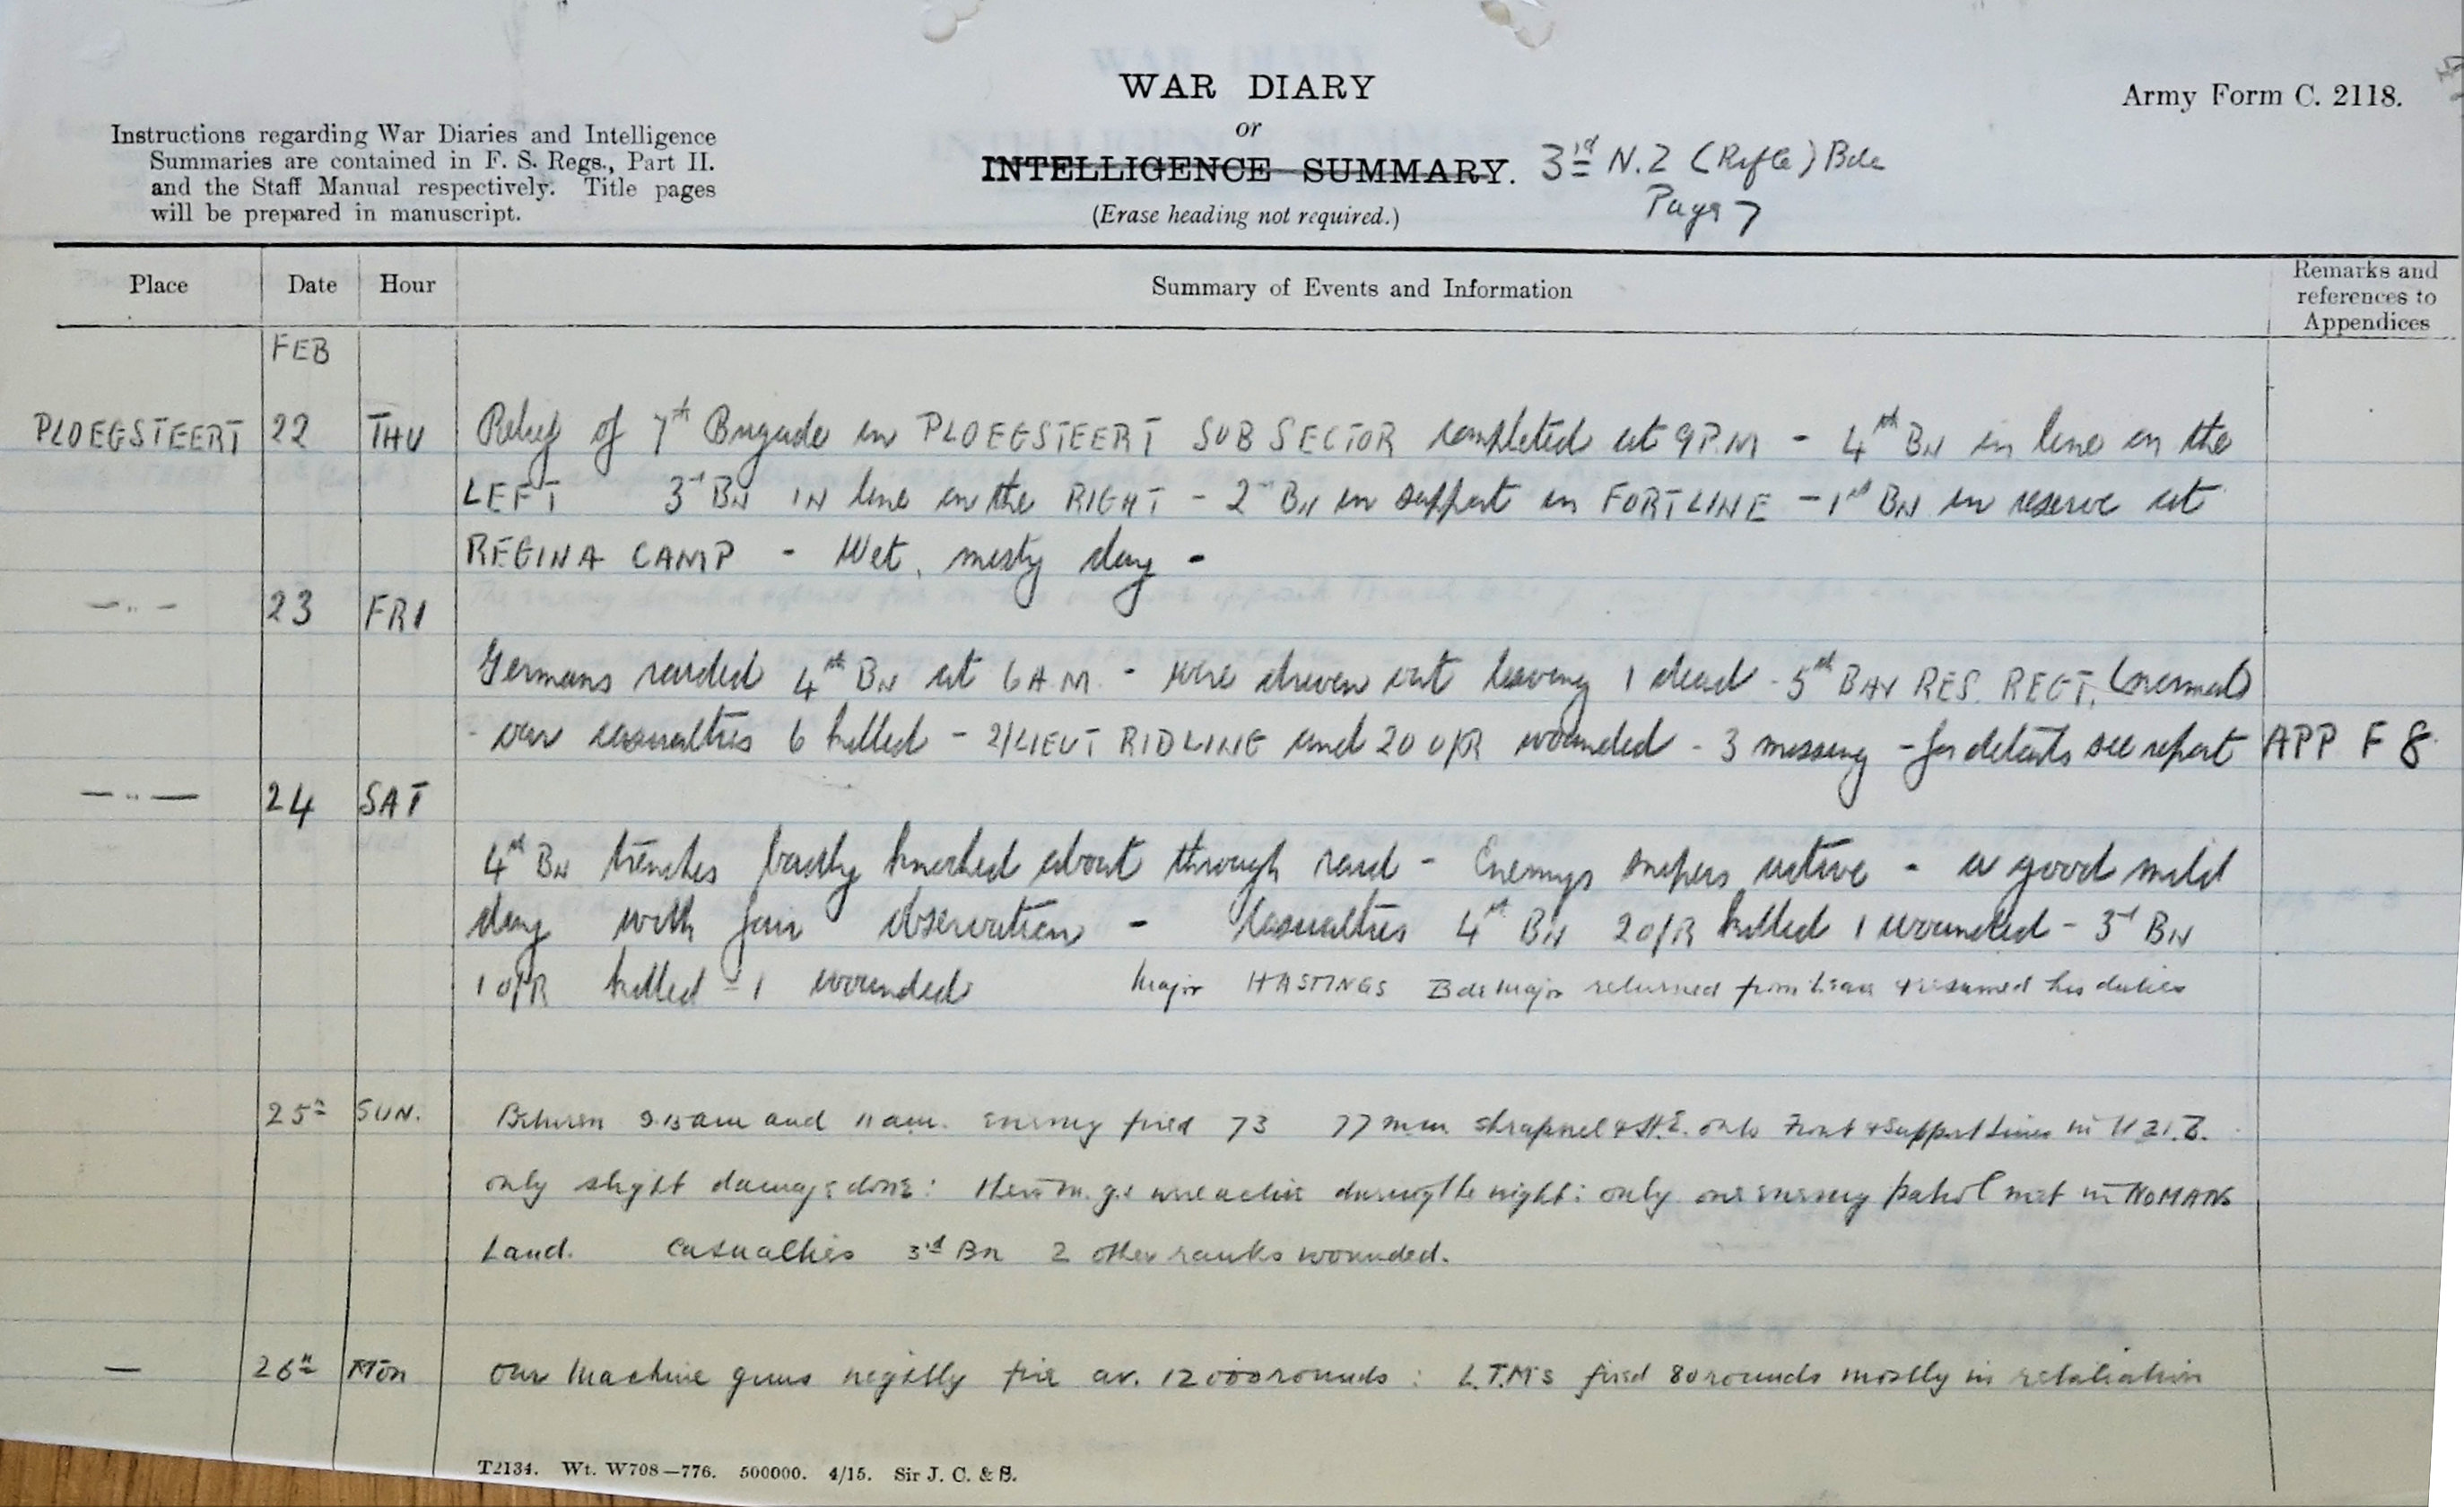 WAR DIARY
or
INTELLIGENCE SUMMARY.
(Erase heading not required.)
Army Form C. 2118.
Instructions regarding War Diaries and Intelligence
Summaries are contained in F. S. Regs., Part II.
and the Staff Manual respectively. Title pages
will be prepared in manuscript.
3rd N.Z (Rifle) Bde
Page 7
Place Date Hour Summary of Events and Information Remarks and references to Appendices
FEB
PLOEGSTEERT 22 THU Relief of 7th Brigade in PLOEGSTEERT SUB SECTOR completed at 9 P.M - 4th BN in line on the
LEFT 3rd BN IN line on the RIGHT - 2nd BN in support in FORT LINE - 1st BN in reserve at
REGINA CAMP - Wet, misty day -
-"- 23 FRI
Germans raided 4th BN at 6 A.M. - were driven out leaving 1 dead - 5th BAV RES. REGT. (normal)
- our casualties 6 killed - 2/LIEUT RIDLING and 20 O/R wounded - 3 missing - for details see report APP F 8
-"- 24 SAT
4th BN trenches badly knocked about through raid - Enemys snipers active - a good mild
day with fair observation - Casualties 4th BN 2 O/R killed 1 wounded - 3rd BN
1 O/R killed - 1 wounded Major HASTINGS Bde Major returned from leave & resumed his duties
25th SUN. Between 9.15 am and 11 am. enemy fired 73 77 mm shrapnel & H.E. onto Front & Support Lines in U 21.
only slight damage done: Their m.gs were active during the night: only one enemy patrol met in NO MANS
Land. Casualties 3rd Bn 2 other ranks wounded.
— 26th Mon Our machine guns nightly fire av. 12000 rounds: L.T.M's fired 80 rounds mostly in retaliation
T2134. Wt. W708—776. 500000. 4/15. Sir J. C. & S.